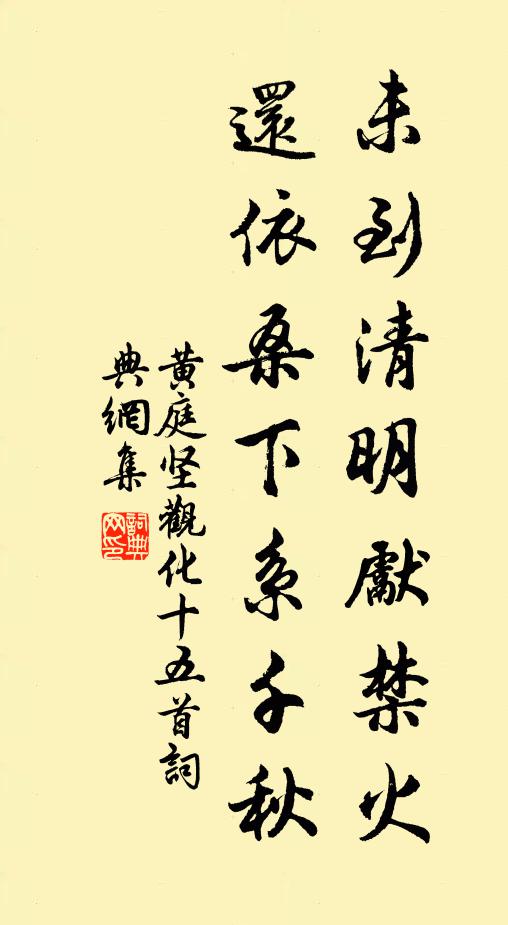 未到清明獻禁火
還依桑下系千秋
黄庭坚觀化十五首詞
典網集
詞典
网印